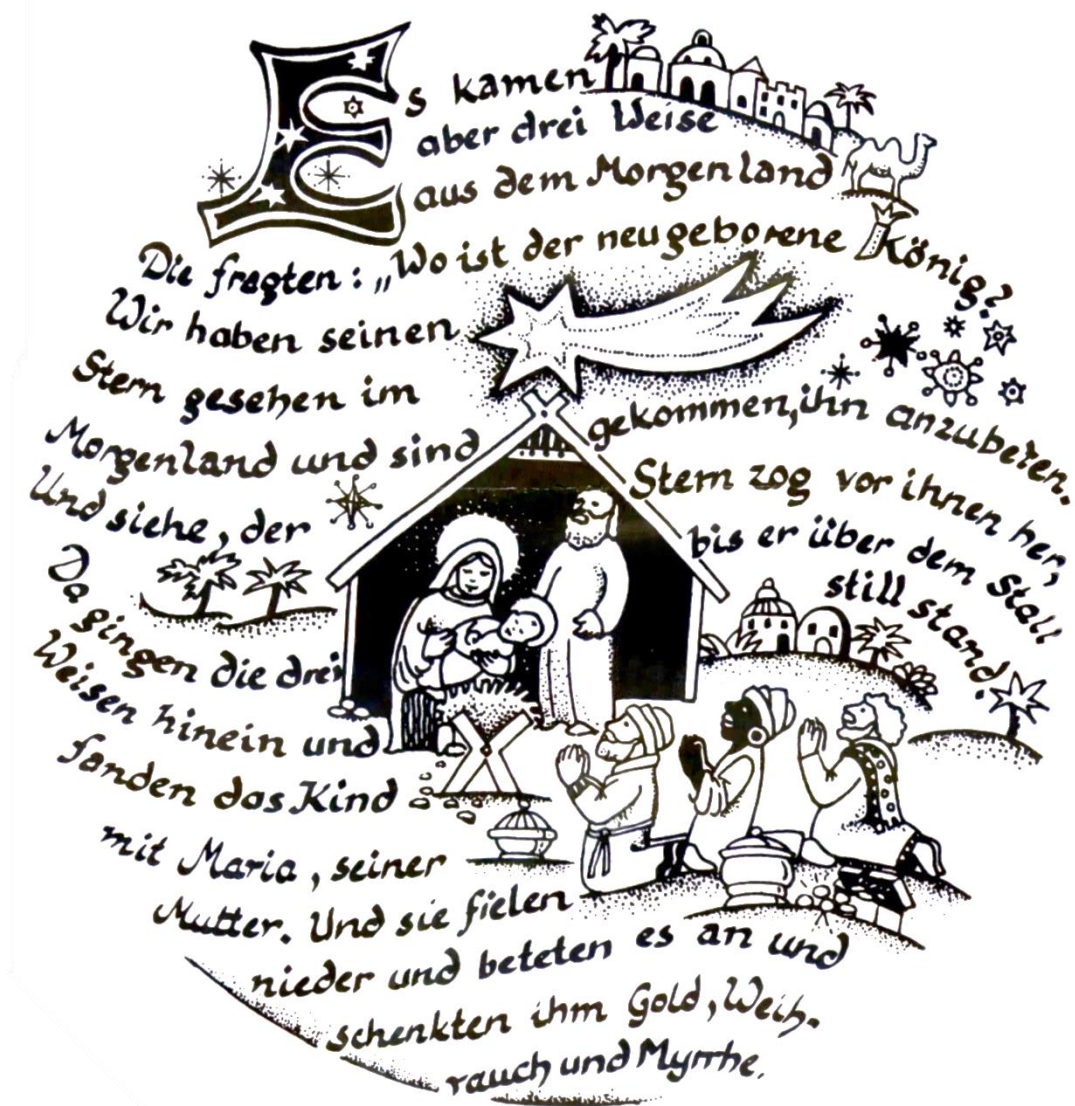 Es kamen
aber drei Weise
aus dem Morgenland
Die fragten: „Wo ist der neugeborene König?
Wir haben seinen
Stern gesehen im
Morgenland und sind gekommen, ihn anzubeten.
Und siehe, der Stern zog vor ihnen her,
bis er über dem Stall
still stand.
Da gingen die drei
Weisen hinein und
fanden das Kind
mit Maria, seiner
Mutter. Und sie fielen
nieder und beteten es an und
schenkten ihm Gold, Weih-
rauch und Myrrhe.